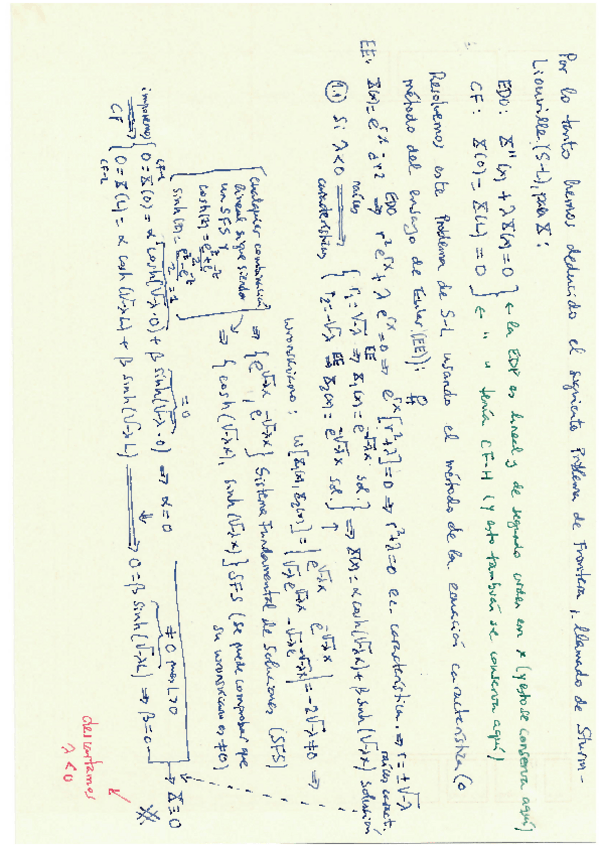 Por lo tanto hemos deducido el siguiente Problema de Frontera, llamado de Sturm-
Liouville (S-L), para X:
EDO: X''(x) + λX(x) = 0 } ← la EDP es lineal y de segundo orden en x (y esto se conserva aquí)
CF: X(0) = X(L) = 0 } ← " " tenía CF-H (y esto también se conserva aquí)
Resolvemos este Problema de S-L usando el método de la ecuación característica (o
método del ensayo de Euler (EE)):
EE: X(x) = e^{rx} ¿r? EDO ⇒ r² e^{rx} + λ e^{rx} = 0 ⇒ e^{rx} [r²+λ] = 0 ⇒ r²+λ = 0 ec. característica. ⇒ r = ±√-λ
raíces caract.
1.1 Si λ<0 ⇒ raíces características { r₁ = √-λ EE ⇒ X₁(x) = e^{√-λx} sol. } ⇒ X(x) = α cosh(√-λx) + β sinh(√-λx) solución
{ r₂ = -√-λ EE ⇒ X₂(x) = e^{-√-λx} sol. }
Wronskiano: W[X₁(x), X₂(x)] = | e^{√-λx} e^{-√-λx} |
| √-λ e^{√-λx} -√-λ e^{-√-λx} | = -2√-λ ≠ 0 ⇒
⇒ {e^{√-λx}, e^{-√-λx}} Sistema Fundamental de Soluciones (SFS)
cualquier combinación
lineal sigue siendo
un SFS y
cosh(z) = (e^z + e^{-z})/2
sinh(z) = (e^z - e^{-z})/2
⇒ {cosh(√-λx), sinh(√-λx)} SFS (se puede comprobar que
su wronskiano es ≠0)
imponemos CF ⇒ { CF-1 0 = X(0) = α cosh(√-λ·0) + β sinh(√-λ·0) ⇒ α = 0
=1
=0
{ CF-2 0 = X(L) = α cosh(√-λL) + β sinh(√-λL) ⇒ 0 = β sinh(√-λL) ⇒ β = 0
≠0 pues L>0
→ X ≡ 0
descartamos
λ<0